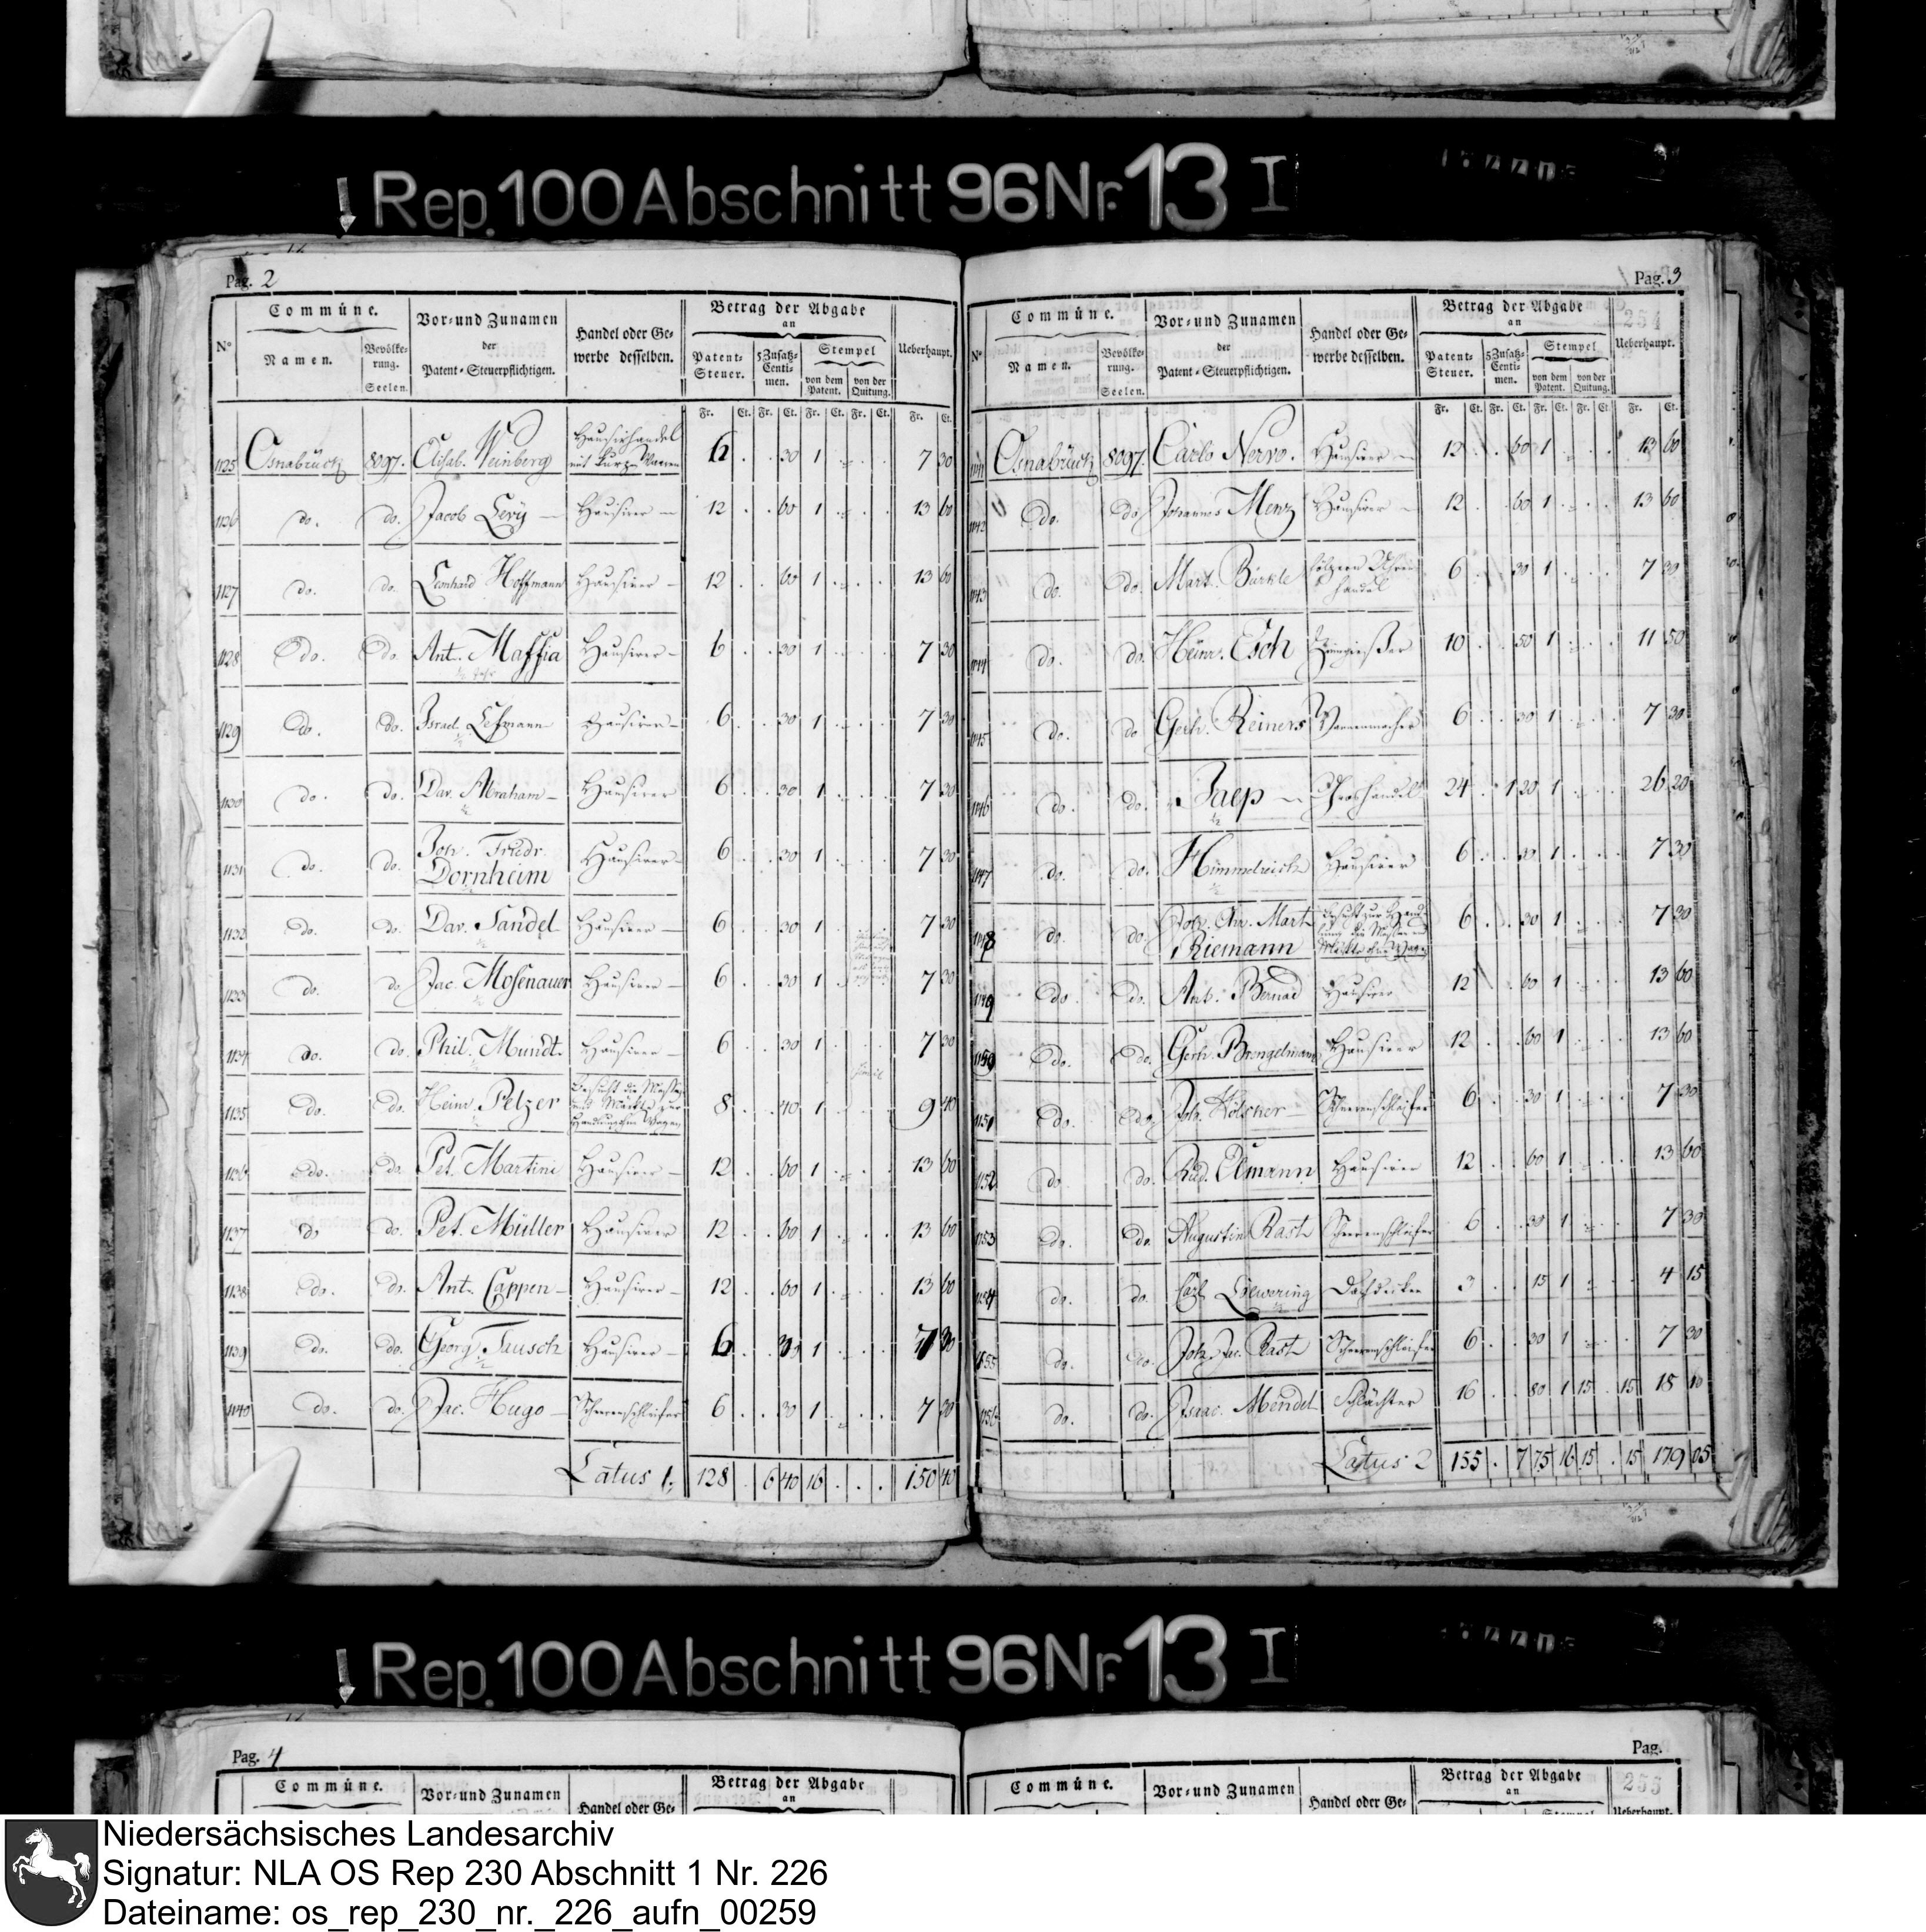 Rep. 100 Abschnitt 96 Nr. 13 I
Pag. 2
N°
Commüne.
Namen.
Bevölke-
rung.
Seelen.
Vor- und Zunamen
der
Patent-Steuerpflichtigen.
Handel oder Ge-
werbe desselben.
Betrag der Abgabe
an
Patent-
Steuer.
5 Zusatz-
Centi-
men.
Stempel
von dem
Patent.
von der
Quitung.
Ueberhaupt.
Fr. Ct. Fr. Ct. Fr. Ct. Fr. Ct. Fr. Ct.
1125 Osnabrück 8097. Elisab. Weinberg Hausirhandel mit kurzen Waaren 6 . . 30 1 7 30
1126 do. do. Jacob Levy Hausirer 12 . . 60 1 13 60
1127 do. do. Leonhard Hoffmann Hausirer 12 . . 60 1 13 60
1128 do. do. Ant. Maffia Hausirer 6 . . 30 1 7 30
1129 do. do. Israel Lefmann Hausirer 6 . . 30 1 7 30
1130 do. do. Dav. Abraham Hausirer 6 . . 30 1 7 30
1131 do. do. Joh. Friedr. Dornheim Hausirer 6 . . 30 1 7 30
1132 do. do. Dav. Sandel Hausirer 6 . . 30 1 7 30
1133 do. do. Jac. Mosenauer Hausirer 6 . . 30 1 7 30
1134 do. do. Phil. Mundt. Hausirer 6 . . 30 1 7 30
1135 do. do. Heinr. Pelzer Besucht die Messen und Märkte zur Handlung 8 . . 40 1 9 40
1136 do. do. Pet. Martini Hausirer 12 . . 60 1 13 60
1137 do. do. Pet. Müller Hausirer 12 . . 60 1 13 60
1138 do. do. Ant. Cappen Hausirer 12 . . 60 1 13 60
1139 do. do. Georg Tausch Hausirer 6 . . 30 1 7 30
1140 do. do. Jac. Hugo Scheerenschleifer 6 . . 30 1 7 30
Latus 1. 128 . 6 40 16 . . . 150 40
Pag. 3
254
N°
Commüne.
Namen.
Bevölke-
rung.
Seelen.
Vor- und Zunamen
der
Patent-Steuerpflichtigen.
Handel oder Ge-
werbe desselben.
Betrag der Abgabe
an
Patent-
Steuer.
5 Zusatz-
Centi-
men.
Stempel
von dem
Patent.
von der
Quitung.
Ueberhaupt.
Fr. Ct. Fr. Ct. Fr. Ct. Fr. Ct. Fr. Ct.
1141 Osnabrück 8097. Carlo Nervo. Hausirer 12 . . 60 1 13 60
1142 do. do. Johannes Menz Hausirer 12 . . 60 1 13 60
1143 do. do. Mart. Bärkle hölzern Uhren handel 6 . . 30 1 7 30
1144 do. do. Heinr. Esch Zinngießer 10 . . 50 1 11 50
1145 do. do. Gerh. Reiners Wannenmacher 6 . . 30 1 7 30
1146 do. do. Jaep 24 . 1 20 1 26 20
1147 do. do. Himmelreich Hausirer 6 . . 30 1 7 30
1148 do. do. Joh. Chr. Mart. Riemann 6 . . 30 1 7 30
1149 do. do. Ant. Bernad Hausirer 12 . . 60 1 13 60
1150 do. do. Gerh. Brengelmann Hausirer 12 . . 60 1 13 60
1151 do. do. Joh. Hölscher Scheerenschleifer 6 . . 30 1 7 30
1152 do. do. Rud. Elmann Hausirer 12 . . 60 1 13 60
1153 do. do. Augustin Rast Scheerenschleifer 6 . . 30 1 7 30
1154 do. do. Carl Dachdecker 3 . . 15 1 4 15
1155 do. do. Joh. Jac. Rast Scheerenschleifer 6 . . 30 1 7 30
1156 do. do. Isaac Mendel Schlächter 16 . . 80 1 15 . 15 18 10
Latus 2 155 . 7 75 16 15 . 15 179 05
Rep. 100 Abschnitt 96 Nr. 13 I
Pag. 4
Commüne.
Vor- und Zunamen
Handel oder Ge-
Betrag der Abgabe
an
Pag.
255
Commüne.
Vor- und Zunamen
Handel oder Ge-
Betrag der Abgabe
an
Stempel
Ueberhaupt.
Niedersächsisches Landesarchiv
Signatur: NLA OS Rep 230 Abschnitt 1 Nr. 226
Dateiname: os_rep_230_nr._226_aufn_00259